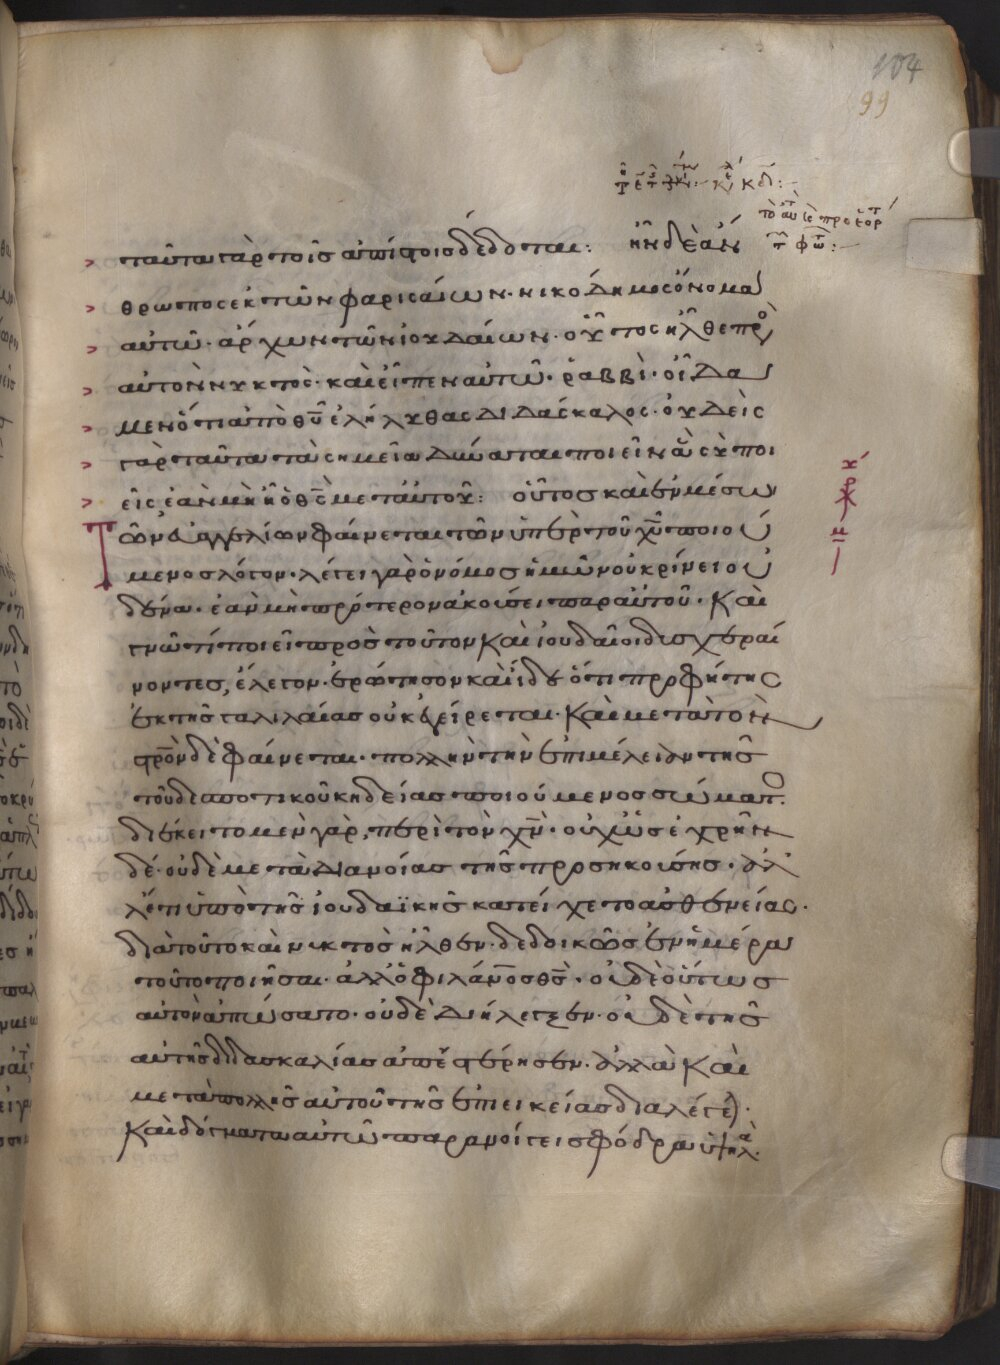 104
99
ταῦτα γὰρ τοῖς ἀπίστοις δέδοται: ἦν δὲ ἄν
θρωπος ἐκ τῶν φαρισαίων· νικόδημος ὄνομα
αὐτῶ· ἄρχων τῶν ἰουδαίων· οὗτος ἦλθε πρὸς
αὐτὸν νυκτὸς· καὶ εἶπεν αὐτῶ· ῥαββὶ· οἴδα
μεν ὅτι ἀπὸ θῦ ἐλήλυθας διδάσκαλος· οὐδεὶς
γὰρ ταῦτα τὰ σημεῖα δύναται ποιεῖν ἃ σὺ ποι
εῖς ἐὰν μὴ ἦ ὁ θς μετ' αὐτοῦ: οὗτος καὶ ἐν μέσω
Τῶν εὐαγγελίων φαίνεται τὸν ὑπὲρ τοῦ χῦ ποιού
μενος λόγον· λέγει γὰρ ὁ νόμος ἡμῶν οὐ κρίνει οὐ
δένα· ἐὰν μὴ πρότερον ἀκούσει παρ' αὐτοῦ· καὶ
γνῶ τί ποιεῖ πρὸς τοῦτον καὶ ἰουδαῖοι δυσχεραί
νοντες, ἔλεγον· ἐρώτησον καὶ ἴδε ὅτι προφήτης
ἐκ τῆς γαλιλαίας οὐκ ἐγείρεται· καὶ μετὰ τὸν
στρὸν δὲ φαίνεται· πολλὴν τὴν ἐπιμέλειαν τῆς
τοῦ δεσποτικοῦ κηδείας ποιούμενος σώματος·
διέκειτο μὲν γὰρ, περὶ τὸν χν· οὐχ ὡς ἐχρῆν
δέ· οὐδὲ μετὰ διανοίας τῆς προσηκούσης· ἀλ
λ' ἔτι ὑπὸ τῆς ἰουδαϊκῆς κατείχετο ἀσθενείας·
διὰ τοῦτο καὶ νυκτὸς ἦλθεν· δεδοικὼς ἐν ἡμέρα
τοῦτο ποιῆσαι· ἀλλ' ὁ φιλάνος θς· οὐδὲ οὕτως
αὐτὸν ἀπώσατο· οὐδὲ διήλεγξεν· οὐδὲ τῆς
αὐτῆς διδασκαλίας ἀπεστέρησεν· ἀλλὰ καὶ
μετὰ πολλῆς αὐτοῦ τῆς ἐπιεικείας διαλέγεται·
καὶ δόγματα αὐτῶ παρανοίγει σφόδρα ὑψηλὰ·